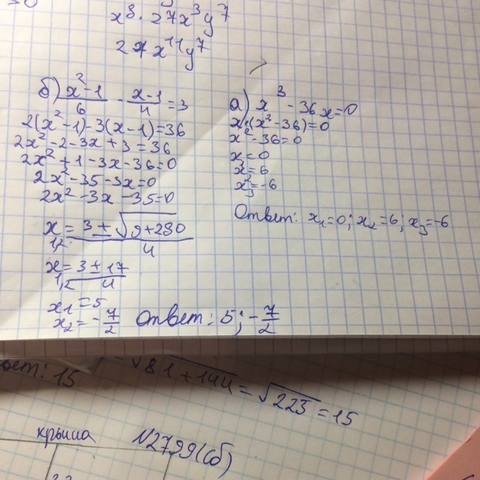 x⁸ · 27x³y⁷
27x¹¹y⁷
б) (x²-1)/6 - (x-1)/4 = 3
2(x²-1)-3(x-1)=36
2x²-2-3x+3=36
2x²+1-3x-36=0
2x²-35-3x=0
2x²-3x-35=0
x₁,₂ = (3±√(9+280))/4
x₁,₂ = (3±17)/4
x₁=5
x₂=-7/2 Ответ: 5; -7/2
а) x³-36x=0
x(x²-36)=0
x²-36=0
x=0
x=6
x₃=-6
Ответ: x₁=0; x₂=6; x₃=-6
ет: 15
√(81+144) = √225 = 15
крыша N2799(сб)